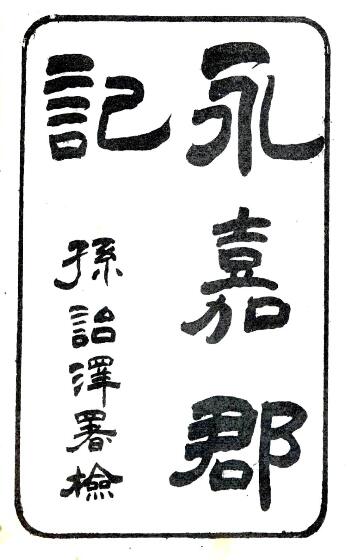 永嘉郡
記
孫詒澤署檢